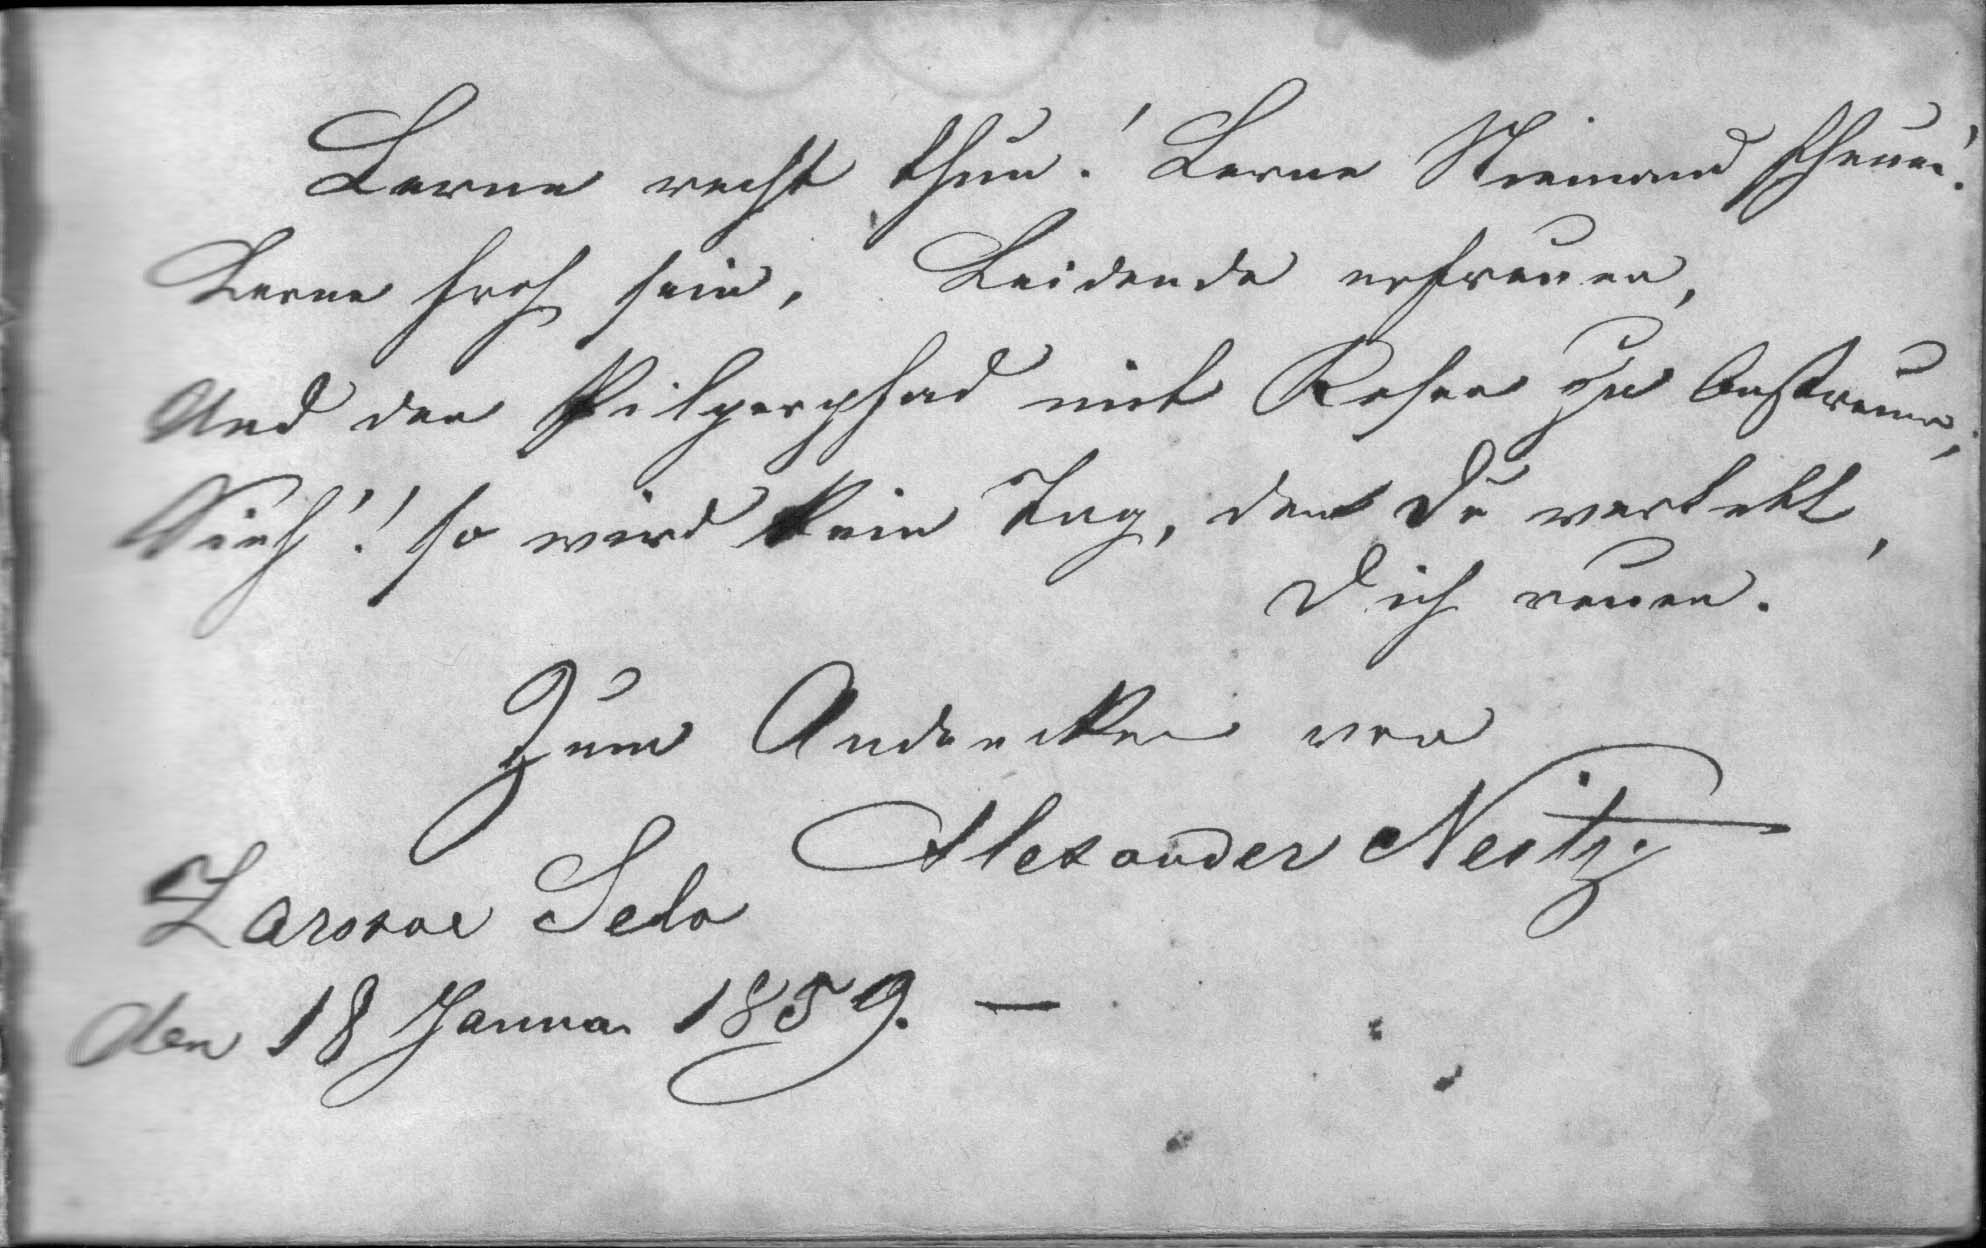 Lerne recht thun! Lerne Niemand scheuen!
Lerne froh sein, Leidende erfreuen,
Und den Pilgerpfad mit Rosen zu bestreuen,
Sieh'! so wird kein Tag, den Du verlebt,
Dich reuen.
Zum Andencken von
Alexander Neitz.
Zarskoe Selo
den 18 Januar 1859. —